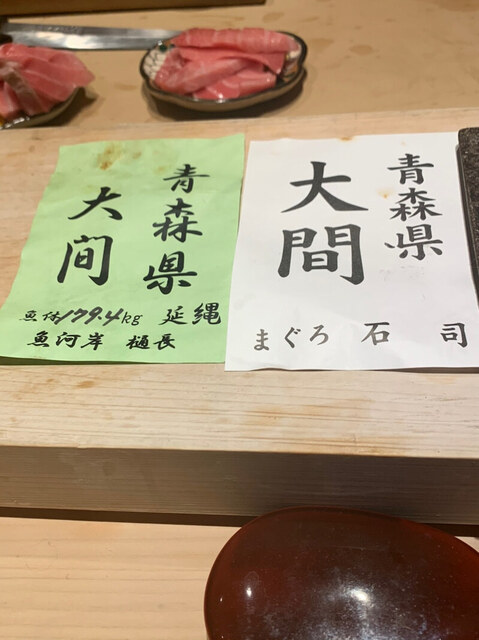 青森県
大間
魚付179.4kg 延縄
魚河岸 樋長
青森県
大間
まぐろ 石 司